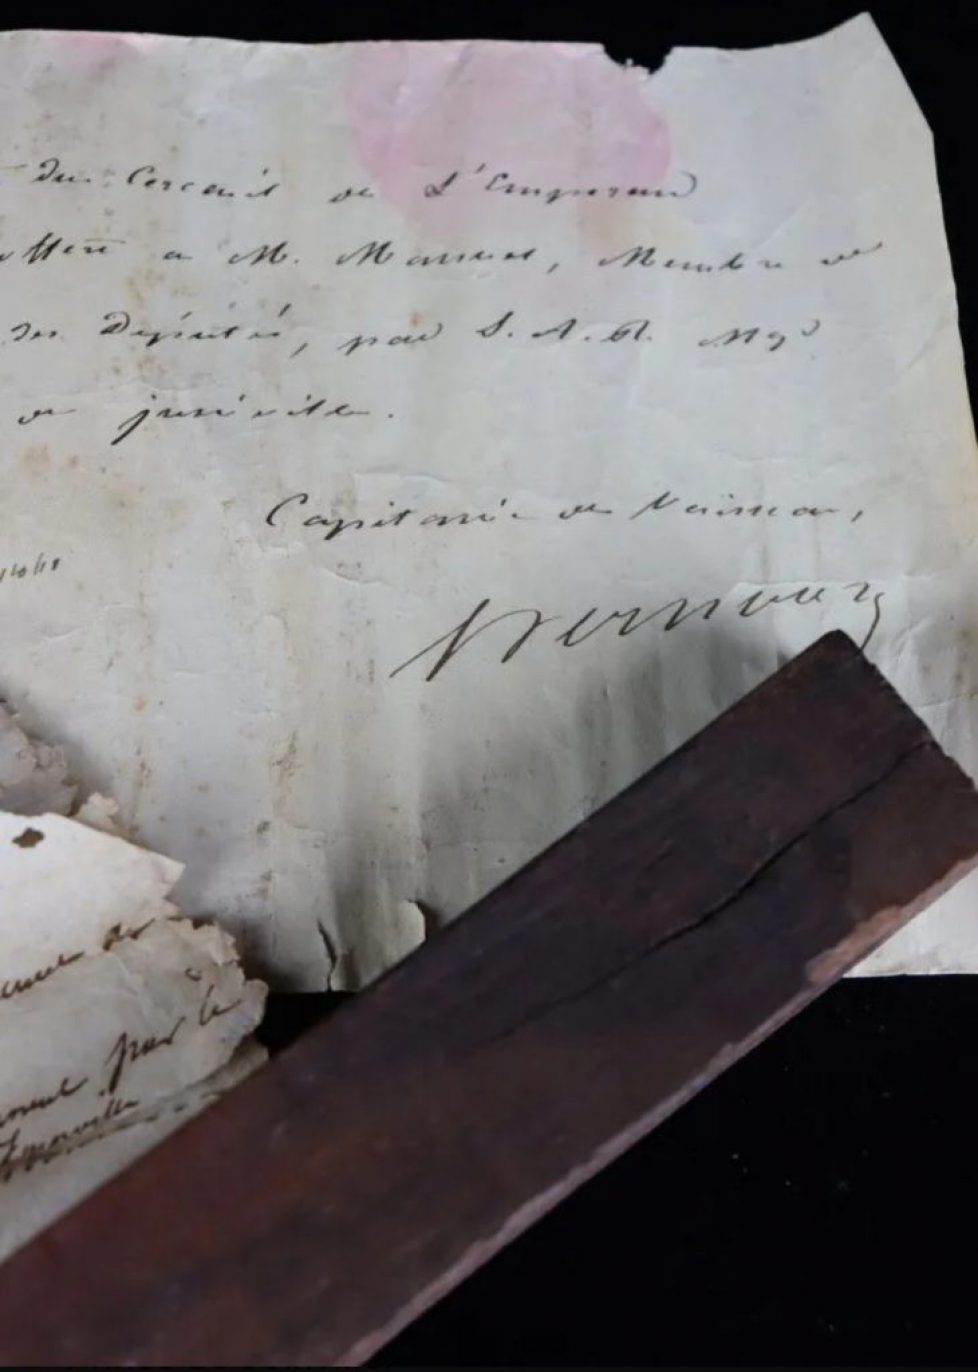 du Cercueil de L'Empereur
offert a M. Manuel, Membre de
des Députés, par S. A. R. Mgr
de joinville.
Capitaine de Vaisseau,
Hernoux
par le
Joinville